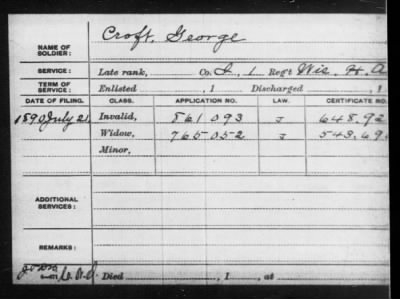 NAME OF SOLDIER: Croft, George
SERVICE: Late rank, Co. I, 1 Reg't Wis. H. A
TERM OF SERVICE: Enlisted , 1 Discharged , 1
DATE OF FILING. CLASS. APPLICATION NO. LAW. CERTIFICATE NO.
1890 July 21 Invalid, 861 093 J 648.92
Widow, 765 052 J 543.69
Minor,
ADDITIONAL SERVICES:
REMARKS:
Died , 1 , at